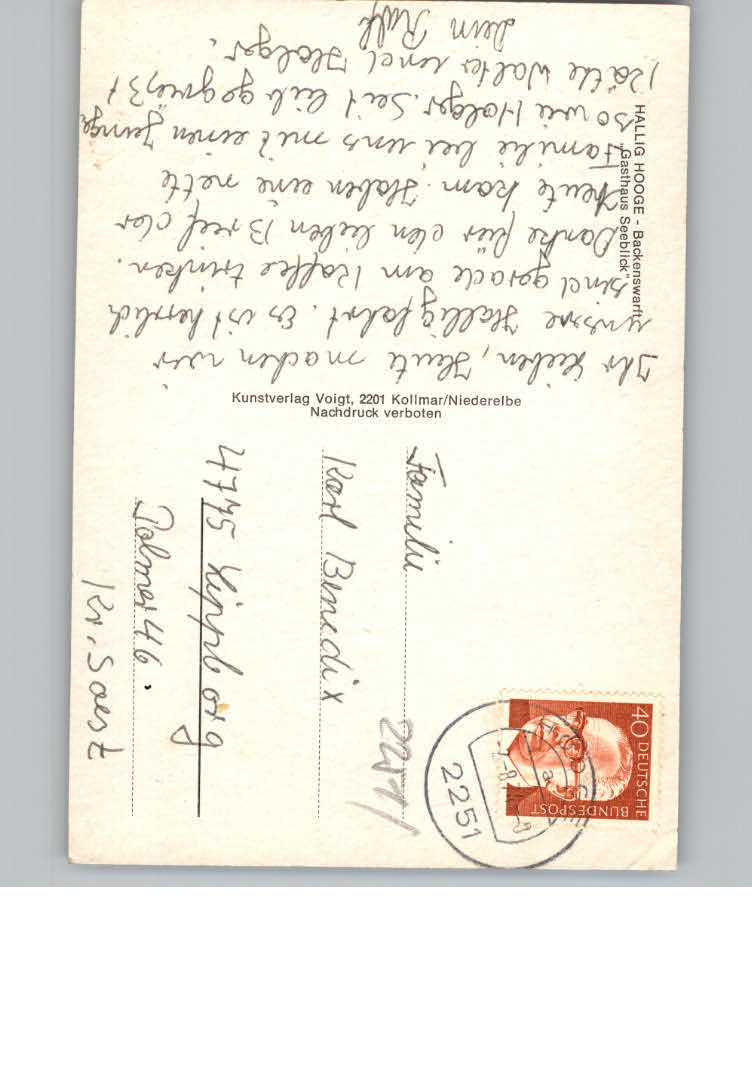 HALLIG HOOGE - Backenswarft
„Gasthaus Seeblick"
Ihr Lieben, Heute machen wir
unsere Halligfahrt. Es ist herrlich
sind gerade am Kaffee trinken.
Danke für den lieben Brief der
Heute kam. Haben eine nette
Familie bei uns mit einen Junge
so wie Holger. Seit lieb gegrüßt
Käthe Walter und Holger.
dein Ralf
Kunstverlag Voigt, 2201 Kollmar/Niederelbe
Nachdruck verboten
Familie
Karl Benedix
4775 Lippborg
Polmer 46.
Kr. Soest
2251
40 DEUTSCHE
BUNDESPOST
2251
a